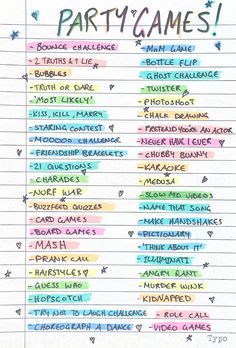 PARTY GAMES!
- BOUNCE CHALLENGE
- 2 TRUTHS & 1 LIE
- BUBBLES
- TRUTH OR DARE
- 'MOST LIKELY'
- KISS, KILL, MARRY
- STARING CONTEST
- MOOOOO CHALLENGE
- FRIENDSHIP BRACELETS
- 21 QUESTIONS
- CHARADES
- NURF WAR
- BUZZFEED QUIZZES
- CARD GAMES
- BOARD GAMES
- MASH
- PRANK CALL
- HAIRSTYLES
- GUESS WHO
- HOPSCOTCH
- TRY NOT TO LAUGH CHALLENGE
- CHOREOGRAPH A DANCE
- MNM GAME
- BOTTLE FLIP
- GHOST CHALLENGE
- TWISTER
- PHOTOSHOOT
- CHALK DRAWING
- PRETEND YOU'RE AN ACTOR
- NEVER HAVE I EVER
- CHUBBY BUNNY
- KARAOKE
- MEDUSA
- SLOW MO VIDEOS
- NAME THAT SONG
- MAKE HANDSHAKES
- PICTIONARY
- 'THINK ABOUT IT'
- ILLUMINATI
- ANGRY RANT
- MURDER WINK
- KIDNAPPED
- ROLE CALL
- VIDEO GAMES
Typo